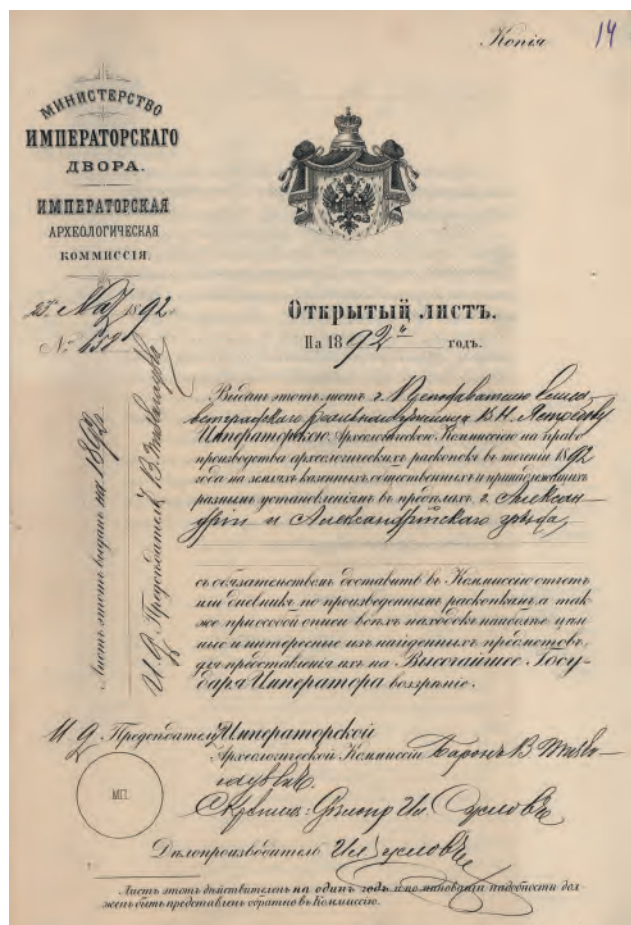 Копія
14
МИНИСТЕРСТВО
ИМПЕРАТОРСКАГО
ДВОРА.
ИМПЕРАТОРСКАЯ
АРХЕОЛОГИЧЕСКАЯ
КОММИССІЯ.
23 Мая 1892
№ 658
Открытый листъ.
На 1892 годъ.
Выданъ этотъ листъ г. Преподавателю Елиса
ветградскаго реальнаго училища В. Н. Ястребову
Императорскою Археологическою Коммиссіею на право
производства археологическихъ раскопокъ въ теченіи 1892
года на земляхъ казенныхъ общественныхъ и принадлежащихъ
разнымъ установленіямъ въ предѣлахъ г. Алексан-
дріи и Александрійскаго уѣзда,
съ обязательствомъ доставить въ Коммиссію отчетъ
или дневникъ по произведеннымъ раскопкамъ, а так
же при особой описи всѣхъ находокъ наиболѣе цѣн
ные и интересные изъ найденныхъ предметовъ,
для представленія ихъ на Высочайшее Госу-
даря Императора воззрѣніе.
Листъ этотъ выданъ на 1892
И. д. Предсѣдателя В. Тизенгаузенъ
И. д. Предсѣдателя Императорской
Археологической Коммиссіи Баронъ В. Тизен-
гаузенъ.
МП.
Скрѣпилъ: Дѣлопр. Ил. Сусловъ
Дѣлопроизводитель Ил. Сусловъ
Листъ этотъ дѣйствителенъ на одинъ годъ и по минованіи надобности дол-
женъ быть представленъ обратно въ Коммиссію.